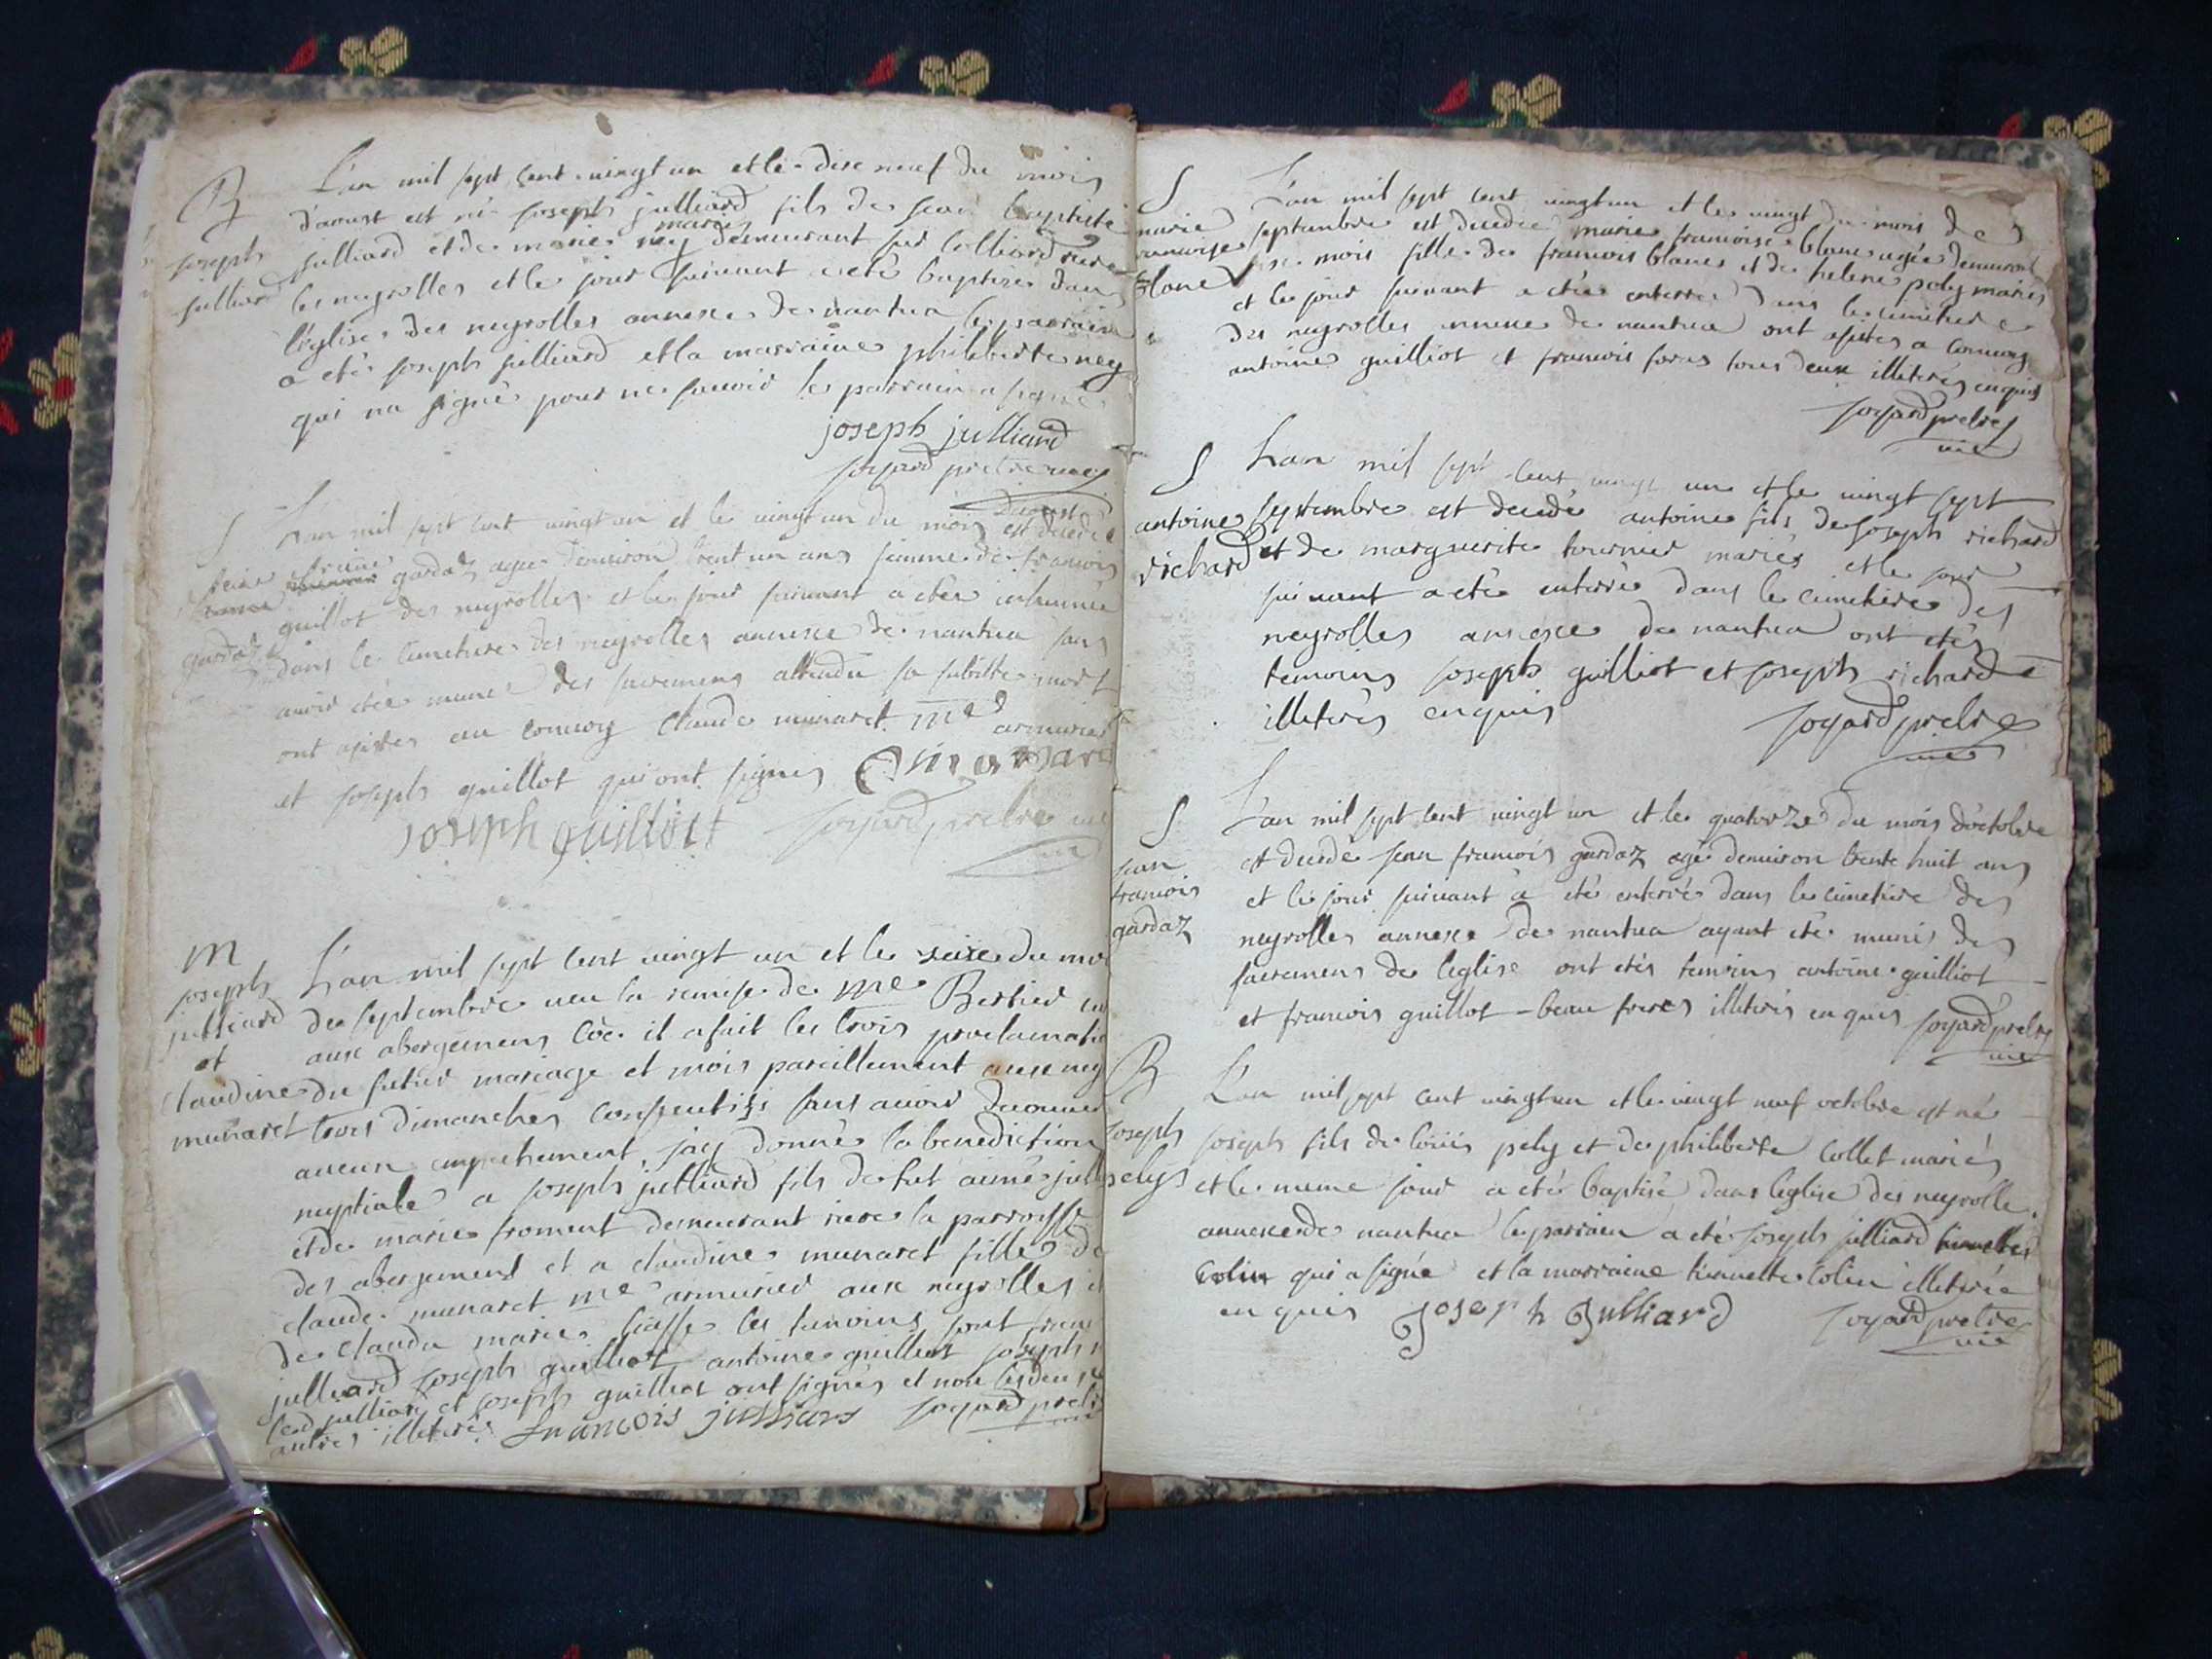 B
joseph
julliard
L'an mil sept cent vingt un et le dixe neuf du mois
d'aoust est né joseph julliard fils de jean baptiste
julliard et de marie ney mariés demeurant sur Colliard riere
les neyrolles et le jour suivant a eté baptisé dans
l'eglise des neyrolles annexe de nantua le parrain
a eté joseph julliard et la marraine philiberte ney
qui na signé pour ne savoir le parrain a signé
joseph julliard
jogard pretre vic
S
gardaz
L'an mil sept cent vingt un et le vingt un du mois d'aoust est decedé
gardaz agée denviron trent un ans femme de francois
guillot des neyrolles et le jour suivant a etée inhumée
dans le cimetiere des neyrolles annexe de nantua sans
avoir etée munie des sacremens attendu sa subitte mort
ont assistes au convoy claude munaret me armurier
et joseph guillot qui ont signes
joseph guilliot jogard pretre vic
m
joseph
julliard
et
claudine
munaret
L'an mil sept cent vingt un et le seize du mo
de septembre veu la remise de me Bertier
aux abergemens il a fait les trois proclamatio
du futur mariage et mois pareillement aux ney
trois dimanches consecutifs sans avoir decouver
aucun empechement jay donné la benediction
nuptiale a joseph julliard fils de fut aimé jull
et de marie froment demeurant riere la parroisse
des abergement et a claudine munaret fille de
claude munaret me armurier aux neyrolles e
de claudu marie les temoins sont franc
julliard joseph guilliot antoine guilliot joseph
led julliard et joseph guilliot ont signés et non les deux
autres illiterés francois julliard jogard pretr
S
marie
francoise
blanc
L'an mil sept cent vingt un et les vingt du mois de
septembre est decedée marie francoise blanc agée denviron
mois fille de francois blanc et de helene poly mariés
et le jour suivant a etée enterrée dans le cimetiere
des neyrolles annexe de nantua ont assistes a convoy
antoine guilliot et francois foras tous deux illiterés enquis
jogard pretre
vic
S
antoine
richard
L'an mil sept cent vingt un et le vingt sept
septembre est decedé antoine fils de joseph richard
et de marguerite tournier mariés et le jour
suivant a eté enterré dans le cimetiere des
neyrolles annexe de nantua ont etés
temoins joseph guilliot et joseph richard
illiterés enquis jogard pretre
vic
S
jean
francois
gardaz
L'an mil sept cent vingt un et le quatorze du mois d'octobre
est decedé jean francois gardaz agé denviron trente huit ans
et le jour suivant a eté enterré dans le cimetiere des
neyrolles annexe de nantua ayant eté munis des
sacremens de leglise ont etés temoins antoine guilliot
et francois guillot beau freres illiterés enquis jogard pretre
vic
B
joseph
pely
L'an mil sept cent vingt un et le vingt neuf octobre est né
joseph fils de loüis pely et de philiberte collet mariés
et le meme jour a eté baptisé dans leglise des neyrolle
annexe de nantua le parrain a eté joseph julliard
colin qui a signé et la marraine tienette colin illiterée
enquis joseph julliard jogard pretre
vic